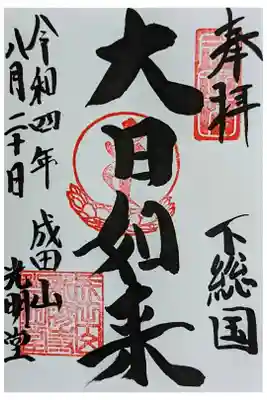 奉拝
下総国
大日如来
令和四年
八月二十日
成田山
光明堂